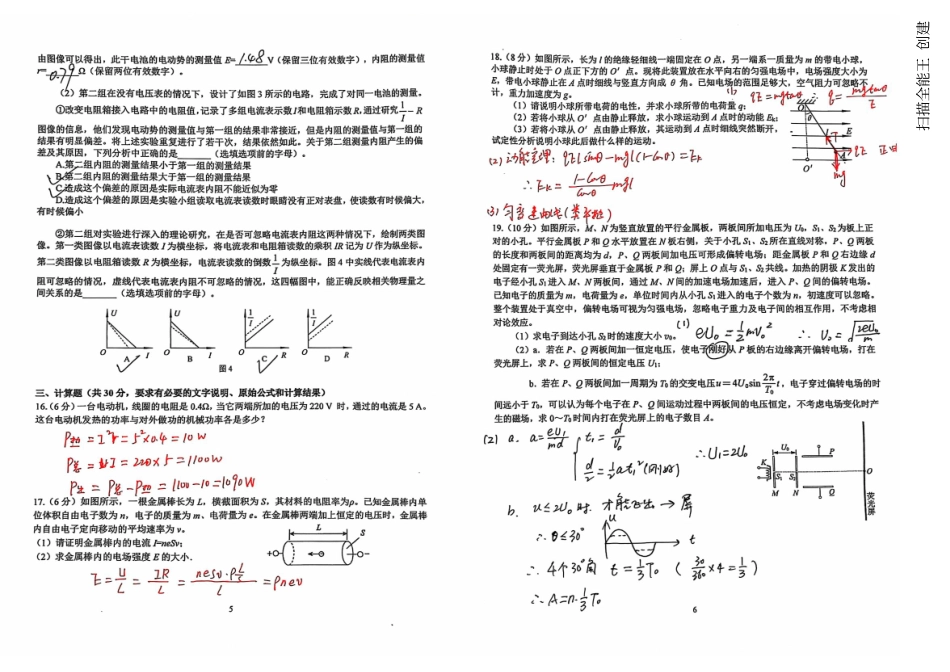 由图像可以得出，此干电池的电动势的测量值 E= 1.48 V（保留三位有效数字），内阻的测量值
r= 0.79 Ω（保留两位有效数字）。
（2）第二组在没有电压表的情况下，设计了如图 3 所示的电路，完成了对同一电池的测量。
①改变电阻箱接入电路中的电阻值，记录了多组电流表示数 I 和电阻箱示数 R，通过研究 1/I − R
图像的信息，他们发现电动势的测量值与第一组的结果非常接近，但是内阻的测量值与第一组的
结果有明显偏差。将上述实验重复进行了若干次，结果依然如此。关于第二组测量内阻产生的偏
差及其原因，下列分析中正确的是______（选填选项前的字母）。
A.第二组内阻的测量结果小于第一组的测量结果
B.第二组内阻的测量结果大于第一组的测量结果
C.造成这个偏差的原因是实际电流表内阻不能近似为零
D.造成这个偏差的原因是实验小组读取电流表读数时眼睛没有正对表盘，使读数有时候偏大，
有时候偏小
②第二组对实验进行深入的理论研究，在是否可忽略电流表内阻这两种情况下，绘制两类图
像。第一类图像以电流表读数 I 为横坐标，将电流表和电阻箱读数的乘积 IR 记为 U 作为纵坐标。
第二类图像以电阻箱读数 R 为横坐标，电流表读数的倒数 1/I 为纵坐标。图 4 中实线代表电流表内
阻可忽略的情况，虚线代表电流表内阻不可忽略的情况，这四幅图中，能正确反映相关物理量之
间关系的是______（选填选项前的字母）。
U U 1/I 1/I
O A I O B I O C R O D R
图 4
三、计算题（共 30 分，要求有必要的文字说明、原始公式和计算结果）
16.（6 分）一台电动机，线圈的电阻是 0.4Ω，当它两端所加的电压为 220 V 时，通过的电流是 5 A。
这台电动机发热的功率与对外做功的机械功率各是多少？
P热 = I²r = 5²×0.4 = 10W
P总 = UI = 220×5 = 1100W
P出 = P总 - P热 = 1100-10 = 1090W
17.（6 分）如图所示，一根金属棒长为 L，横截面积为 S，其材料的电阻率为ρ。已知金属棒内单
位体积自由电子数为 n，电子的质量为 m、电荷量为 e。在金属棒两端加上恒定的电压时，金属棒
内自由电子定向移动的平均速率为 v。
（1）请证明金属棒内的电流 I=neSv；
（2）求金属棒内的电场强度 E 的大小.
L S
+ -
E = U/L = IR/L = neSv·ρL/S / L = ρnev
5
18.（8 分）如图所示，长为 l 的绝缘轻细线一端固定在 O 点，另一端系一质量为 m 的带电小球，
小球静止时处于 O 点正下方的 O′ 点。现将此装置放在水平向右的匀强电场中，电场强度大小为
E，带电小球静止在 A 点时细线与竖直方向成 θ 角。已知电场的范围足够大，空气阻力可忽略不
计，重力加速度为 g。
（1）请说明小球所带电荷的电性，并求小球所带的电荷量 q；
(1) qE = mgtanθ ∴ q = mgtanθ/E
（2）若将小球从 O′ 点由静止释放，求小球运动到 A 点时的动能 Ek；
（3）若将小球从 O′ 点由静止释放，其运动到 A 点时细线突然断开，
试定性分析说明小球此后做什么样的运动。
O θ T E A qE 正电 O′ mg
(2) 动能定理：qElsinθ - mgl(1-cosθ) = Ek
∴ Ek = 1-cosθ/cosθ mgl
(3) 匀变速曲线(类平抛)
19.（10 分）如图所示，M、N 为竖直放置的平行金属板，两板间所加电压为 U₀，S₁、S₂为板上正
对的小孔。平行金属板 P 和 Q 水平放置在 N 板右侧，关于小孔 S₁、S₂所在直线对称，P、Q 两板
的长度和两板间的距离均为 d，P、Q 两板间加电压可形成偏转电场；距金属板 P 和 Q 右边缘 d
处固定有一荧光屏，荧光屏垂直于金属板 P 和 Q；屏上 O 点与 S₁、S₂共线。加热的阴极 K 发出的
电子经小孔 S₁进入 M、N 两板间，通过 M、N 间的加速电场加速后，进入 P、Q 间的偏转电场。
已知电子的质量为 m，电荷量为 e，单位时间内从小孔 S₁进入的电子个数为 n，初速度可以忽略。
整个装置处于真空中，偏转电场可视为匀强电场，忽略电子重力及电子间的相互作用，不考虑相
对论效应。
（1）求电子到达小孔 S₂时的速度大小 v₀。
(1) eU₀ = 1/2 mv₀² ∴ v₀ = √(2eU₀/m)
（2）a．若在 P、Q 两板间加一恒定电压，使电子刚好从 P 板的右边缘离开偏转电场，打在
荧光屏上，求 P、Q 两板间的恒定电压 U₁；
b．若在 P、Q 两板间加一周期为 T₀ 的交变电压 u = 4U₀sin 2π/T₀ t，电子穿过偏转电场的时
间远小于 T₀，可以认为每个电子在 P、Q 间运动过程中两板间的电压恒定，不考虑电场变化时产
生的磁场，求 0～T₀ 时间内打在荧光屏上的电子数目 A。
(2) a. a = eU₁/md t₁ = d/v₀
d/2 = 1/2 at₁² (刚好) ∴ U₁ = 2U₀
K U₀ S₁ S₂ M N P Q O 荧光屏
b. u ≤ 2U₀ 时 才能飞出 → 屏
∴ θ ≤ 30°
u t
∴ 4个30°角 t = 1/3 T₀ ( 30/360 ×4 = 1/3 )
∴ A = n·1/3 T₀
6
扫描全能王 创建